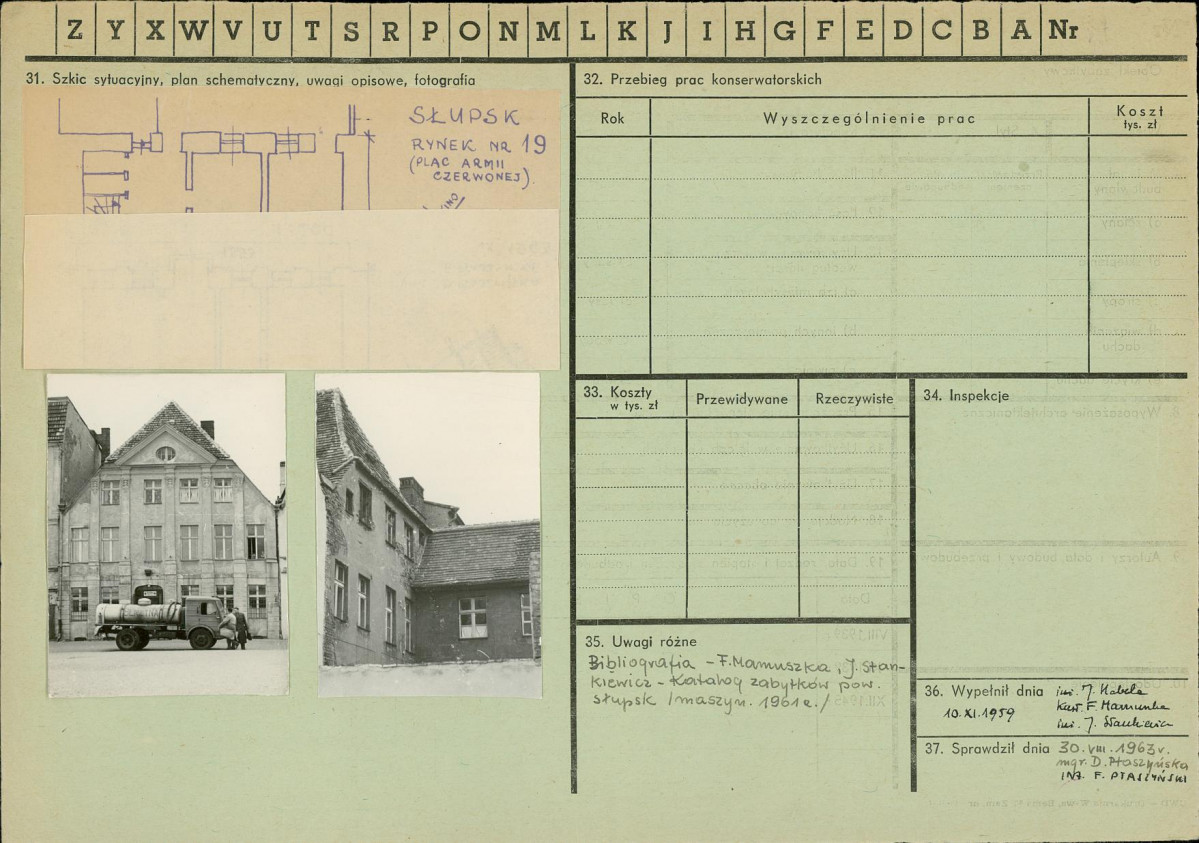 Z Y X W V U T S R P O N M L K J I H G F E D C B A Nr
31. Szkic sytuacyjny, plan schematyczny, uwagi opisowe, fotografia
SŁUPSK
RYNEK NR 19
(PLAC ARMII
CZERWONEJ).
32. Przebieg prac konserwatorskich
Rok
Wyszczególnienie prac
Koszt
tys. zł
33. Koszty
w tys. zł
Przewidywane
Rzeczywiste
34. Inspekcje
35. Uwagi różne
Bibliografia – F. Mamuszka, J. Stan-
kiewicz – Katalog zabytków pow.
słupsk /maszyn. 1961 r./
36. Wypełnił dnia
10.XI.1959
inż. J. Habela
F. Mamuszka
inż. J. Stankiewicz
37. Sprawdził dnia 30.VIII.1963 r.
mgr. D. Ptaszyńska
INŻ. F. PTASZYŃSKI